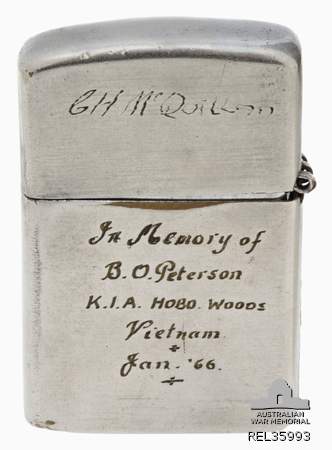 CH
In Memory of
B.O. Peterson
K.I.A. HOBO. WOODS
Vietnam
Jan. '66.
AUSTRALIAN
WAR MEMORIAL
REL35993